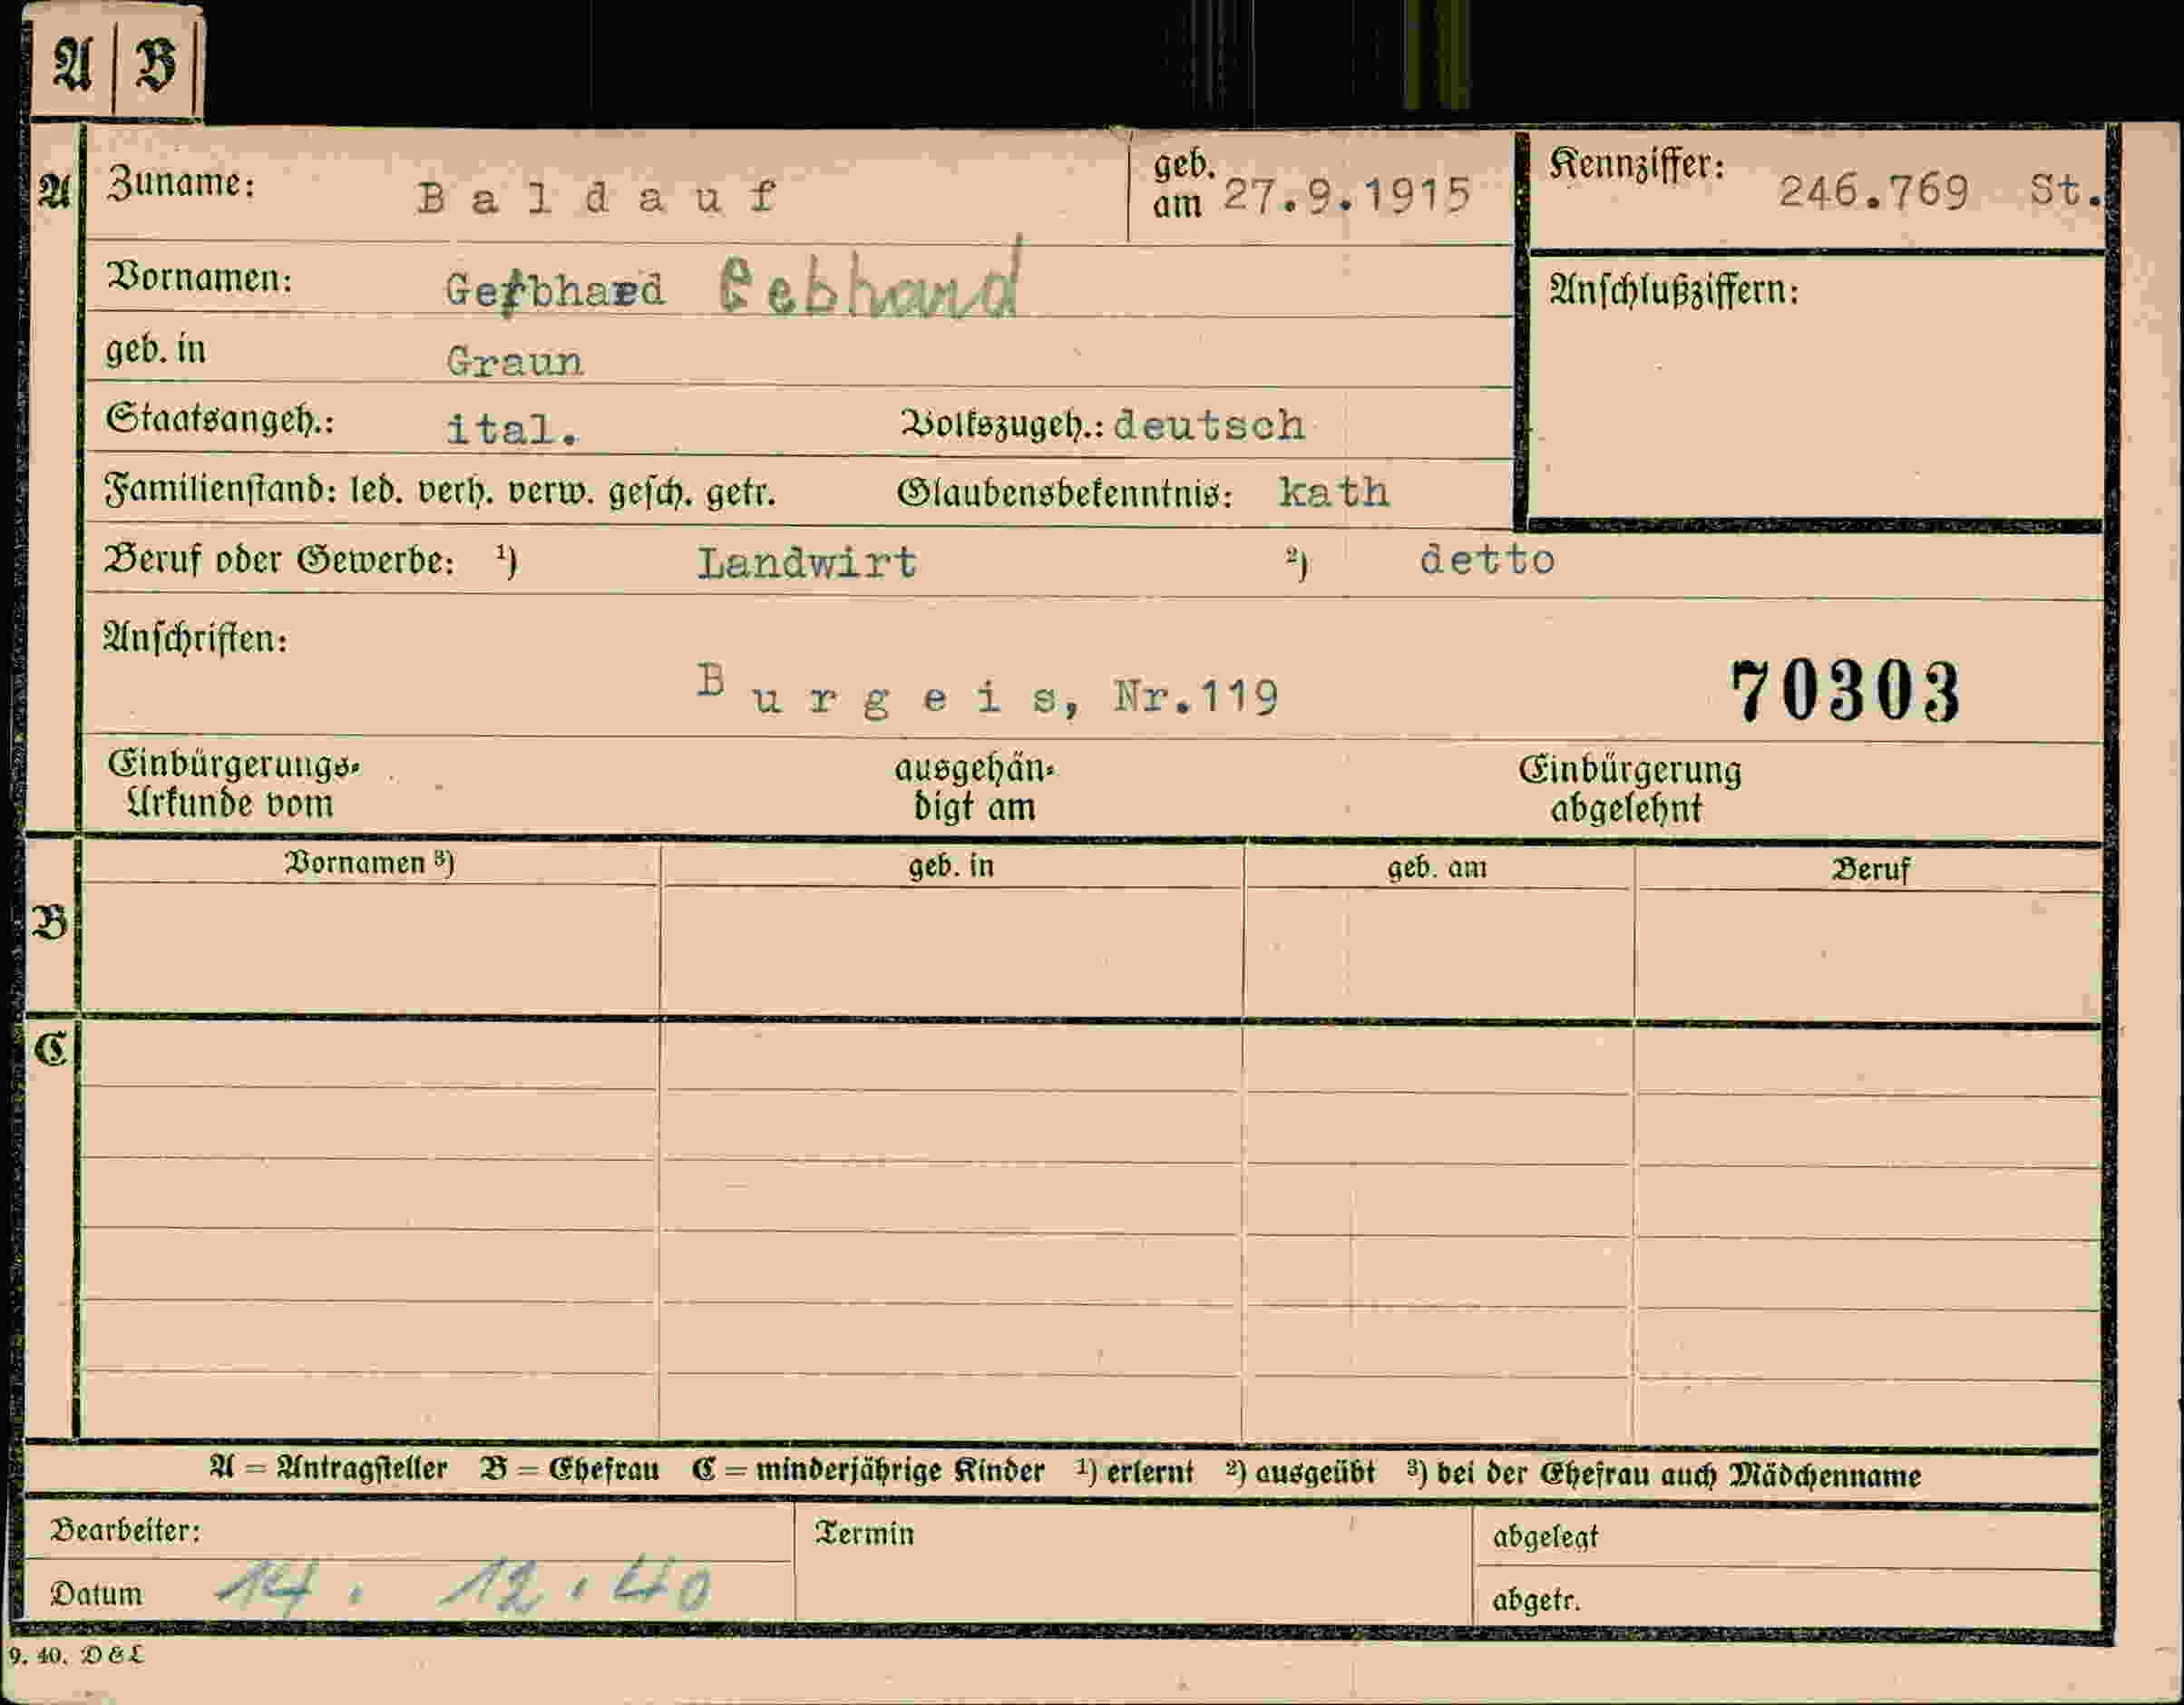 A B
A Zuname: Baldauf geb. am 27.9.1915 Kennziffer: 246.769 St.
Vornamen: Gerbhard Gebhard
Anschlußziffern:
geb. in Graun
Staatsangeh.: ital. Volkszugeh.: deutsch
Familienstand: led. verh. verw. gesch. getr. Glaubensbekenntnis: kath
Beruf oder Gewerbe: ¹) Landwirt ²) detto
Anschriften:
Burgeis, Nr.119 70303
Einbürgerungs- ausgehän- Einbürgerung
Urkunde vom digt am abgelehnt
Vornamen ³) geb. in geb. am Beruf
B
C
A = Antragsteller B = Ehefrau C = minderjährige Kinder ¹) erlernt ²) ausgeübt ³) bei der Ehefrau auch Mädchenname
Bearbeiter: Termin abgelegt
Datum 14. 12. 40 abgetr.
9. 40. D & L